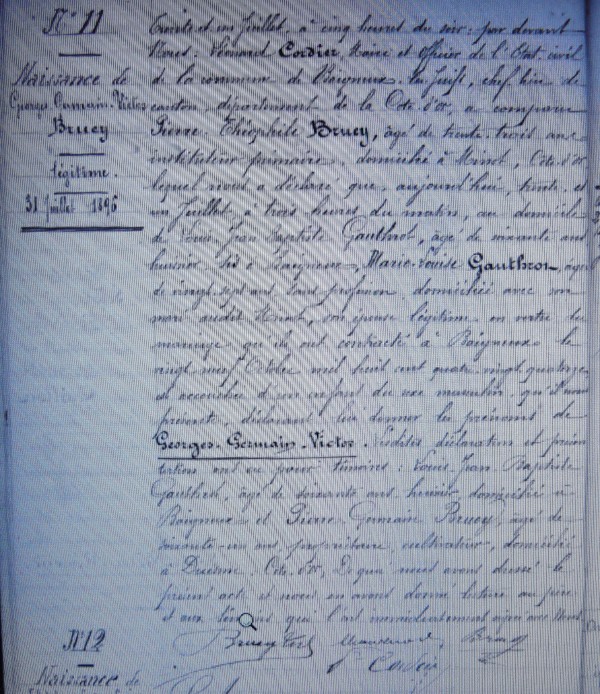 N° 11
Naissance de
Georges Germain Victor
Bruey
légitime.
31 Juillet 1896
trente et un Juillet, à cinq heures du soir, par devant
Nous, Léonard Cordier, Maire et officier de l'Etat civil
de la commune de Baigneux-les-Juifs, chef lieu de
canton, département de la Côte d'or, a comparu
Pierre Théophile Bruey, âgé de trente-trois ans
instituteur primaire, domicilié à Minot, Côte d'or
lequel nous a déclaré que aujourd'hui, trente et
un Juillet, à trois heures du matin, au domicile
de Louis Jean Baptiste Gauthrot, âgé de soixante ans
huissier, sis à Baigneux, Marie-Louise Gauthrot, âgée
de vingt sept ans sans profession domiciliée avec son
mari audit Minot, son épouse légitime en vertu du
mariage qu'ils ont contracté à Baigneux le
vingt neuf Octobre mil huit cent quatre vingt quatorze
est accouchée d'un enfant du sexe masculin qu'il nous
présente, déclarant lui donner les prénoms de
Georges-Germain-Victor. Lesdites déclaration et présen
tation ont eu pour témoins : Louis Jean Baptiste
Gauthrot, âgé de soixante ans huissier, domicilié à
Baigneux et Pierre Germain Bruey, âgé de
soixante-un ans, propriétaire cultivateur, domicilié
à Duesme, Côte d'or, De quoi nous avons dressé le
présent acte et nous en avons donné lecture au père
et aux témoins qui l'ont immédiatement signé avec Nous
Bruey Bruey
Cordier
N° 12
Naissance de